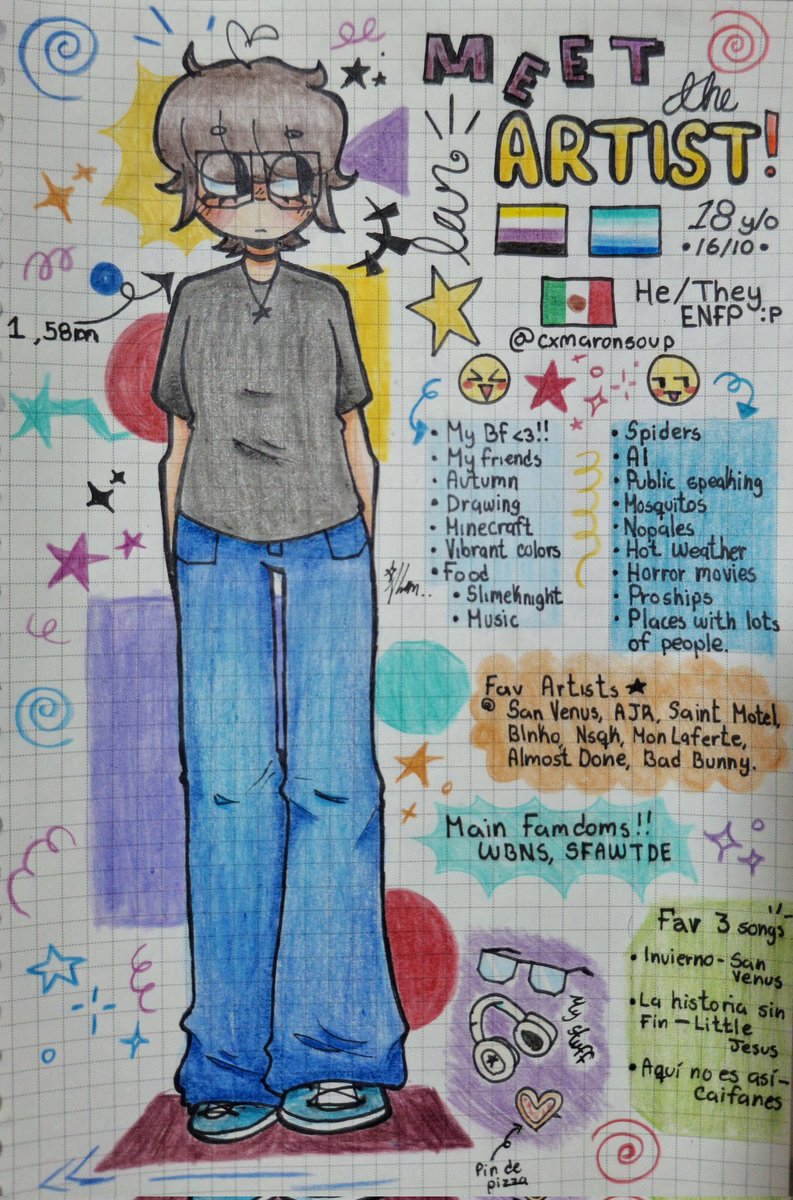 MEET
the
ARTIST!
Ian
18 y/o
• 16/10 •
He/They
ENFP :P
@cxmaronsoup
1,58m
• My Bf <3!!
• My friends
• Autumn
• Drawing
• Minecraft
• Vibrant colors
• Food
• SlimeKnight
• Music
• Spiders
• AI
• Public speaking
• Mosquitos
• Nopales
• Hot weather
• Horror movies
• Proships
• Places with lots
of people.
Fav Artists ★
San Venus, AJR, Saint Motel,
Blnko, Nsqk, Mon Laferte,
Almost Done, Bad Bunny.
Main Famdoms!!
WBNS, SFAWTDE
Fav 3 songs
• Invierno - San
Venus
• La historia sin
Fin - Little
Jesus
• Aquí no es así -
Caifanes
My stuff
Pin de
pizza